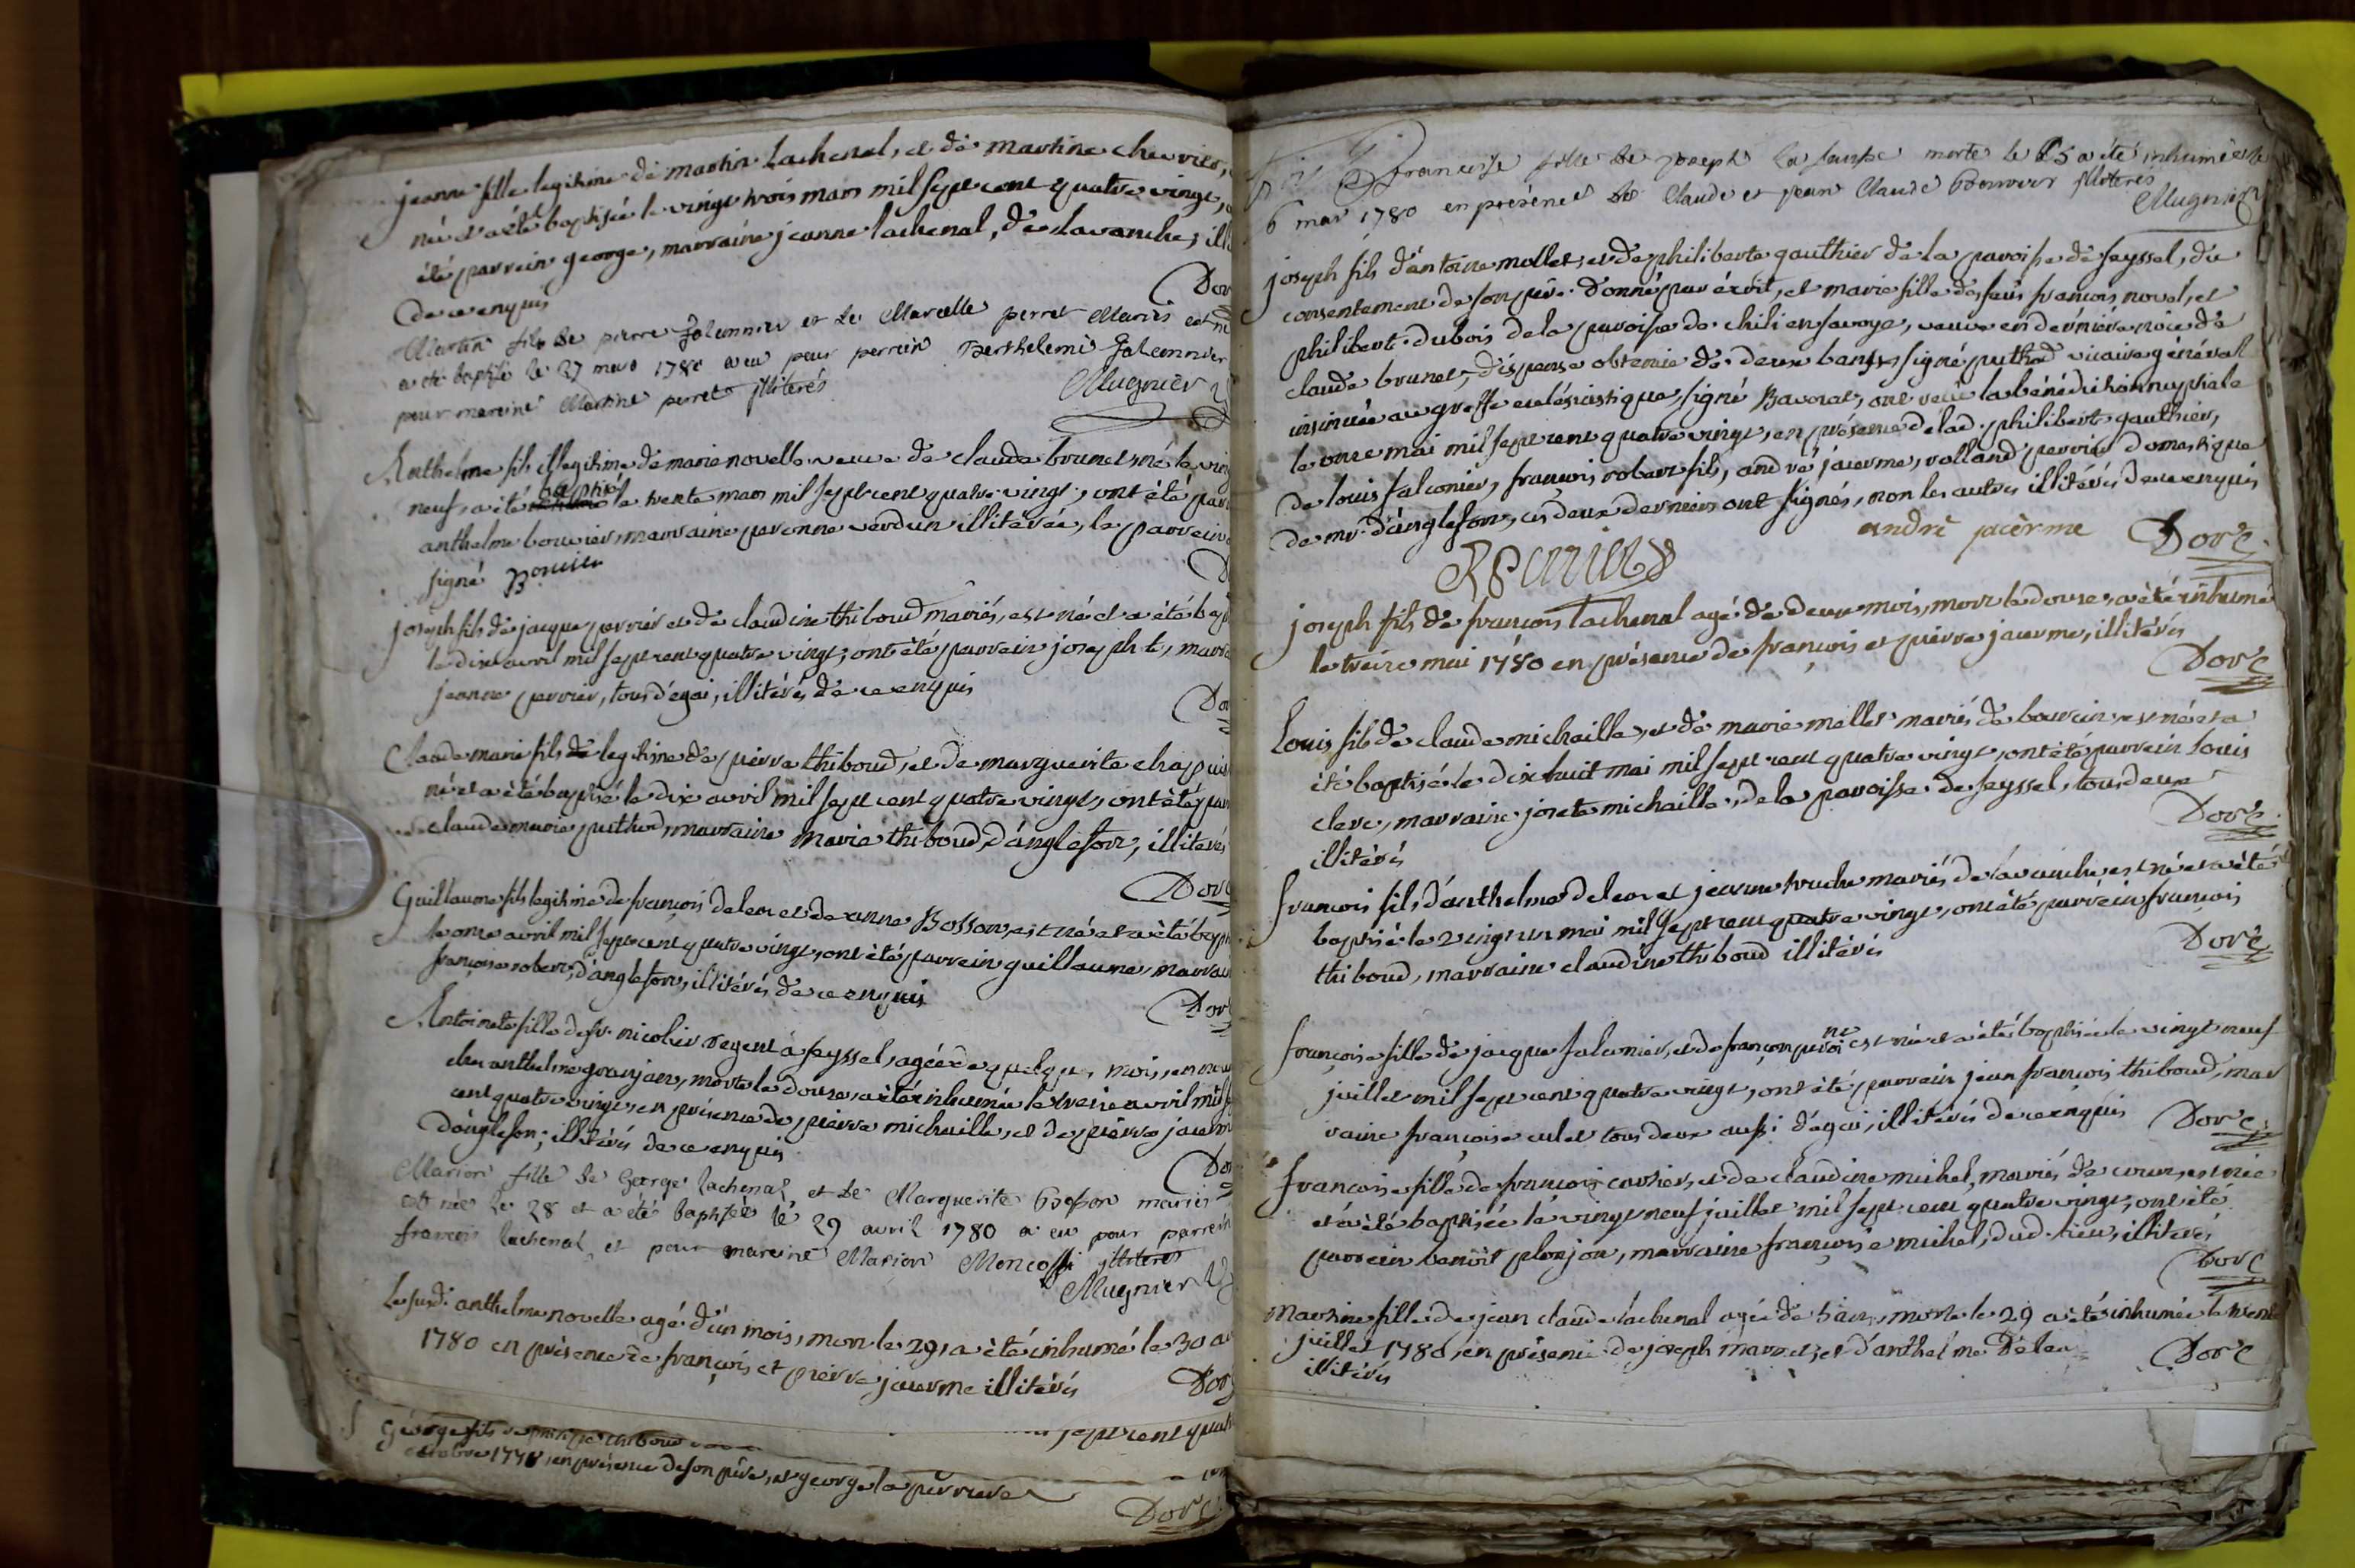 jeanne fille legitime de martin lachenal, et de martine chevrier,
née et a été baptisée le vingt trois mars mil sept cent quatre vingt,
été parrein george, marraine jeanne lachenal, de lavanche, ill
de ce enquis
Dor
Martin fils de pierre falconnier et de Marcelle perret Mariés est né
a été baptisé le 27 mars 1780 a eu pour perrein Berthelemi falconnier
pour mareine Martine perret illiterés
Mugnier
Anthelme fils illegitime de marie novelle veuve de claude brunet, né le ving
neuf, a été baptisé le trente mars mil sept cent quatre vingt, ont été parr
anthelme bouvier, marraine peronne verdun illitérée, le parrein
signé Bouvier
D
joseph fils de jacque perrier et de claudine thiboud mariés, est né et a été bap
le dix avril mil sept cent quatre vingt, ont été parrein joseph t, marr
jeanne perrier, tous d'egai, illitérés de ce enquis
Do
Claude marie fils legitime de pierre thiboud, et de marguerite chapuis
né et a été baptisé le dix avril mil sept cent quatre vingt, ont été par
claude marie puthod, marraine marie thiboud, d'anglefort, illiterés
Doré
Guillaume fils legitime de françois deleas et de anne Bosson, est né et a été bap
le onze avril mil sept cent quatre vingt, ont été parrein guillaume, marrai
françoise robert, d'anglefort, illitérés de ce enquis
Dor
Antoinete fille de sr. nicolier regent à seyssel, agée de quelques mois, en nou
chez anthelme granjan, morte le douze, a été inhumée le treize avril mil s
cent quatre vingt, en présence de pierre michaille, et de pierre jacerm
d'anglefort, illitérés de ce enquis
Do
Marion fille de George lachenal et de Marguerite Bosson mariés
est née le 28 et a été baptisée le 29 avril 1780 a eu pour parrein
francois lachenal et pour mareine Marion Moncossi illiteres
Mugnier
Le susd. anthelme novelle agé d'un mois, mort le 29, a été inhumé le 30 a
1780 en présence de françois et pierre jacerme illitérés
Dor
sept cent quat
George fils de philippe thiboud
octobre 1778, en présence de son père, et george la perriere
Doré
francoise fille de joseph la faupe morte le 5 a été inhumée le
6 mar 1780 en présence de Claude et jean Claude Bouvier illiteres
Mugnier
joseph fils d'antoine mollet, et de philiberte gauthier de la paroisse de seyssel, du
consentement de son père donné par écrit, et marie fille des feus francois novel, et
philibert dubois de la paroisse de chilli en savoye, veuve en dernière noce de
claude brunet, dispense obtenue de deux bans, signé puthod vicaire général
insinuée au greffe eclésiastique, signé Bavorat, ont reçu la bénédiction nuptiale
le onze mai mil sept cent quatre vingt, en présence de lad. philiberte gauthier,
de louis falconier, françois robert fils, andré jacerme, rolland perrier domestique
de mr. d'anglefort, ces deux derniers ont signés, non les autres illitérés de ce enquis
andré jacerme
Doré
R perrier
joseph fils de francois lachenal agé de deux mois, mort le douze, a été inhumé
le treize mai 1780 en présence de françois et pierre jacerme, illitérés
Doré
Louis fils de claude michaille, et de marie mollet mariés de boursin, est né et a
été baptisé le dix huit mai mil sept cent quatre vingt, ont été parrein louis
clerc, marraine josete michaille, de la paroisse de seyssel, tous deux
illitérés
Doré
francois fils d'anthelme deleas et jeanne truche mariés de lavanche est né et a été
baptisé le vingt un mai mil sept cent quatre vingt, ont été parrein francois
thiboud, marraine claudine thiboud illitérés
Doré
françoise fille de jacque falconier, et de françon peroi ne est née et a été baptisée le vingt neuf
juillet mil sept cent quatre vingt, ont été parrein jean francois thiboud, mar
raine françoise culet tous deux aussi d'égai, illitérés de ce enquis
Doré
françoise fille de francois carrier, et de claudine michel, mariés de coeur, est née
et a été baptisée le vingt neuf juillet mil sept cent quatre vingt, ont été
parrein benoit plonjon, marraine françoise michel, dud. lieu, illiterés
Doré
Martine fille de jean claude lachenal agée de 5 ans, morte le 29 a été inhumée le trente
juillet 1780, en présence de joseph marmet, et d'anthelme Delea
illitérés
Doré